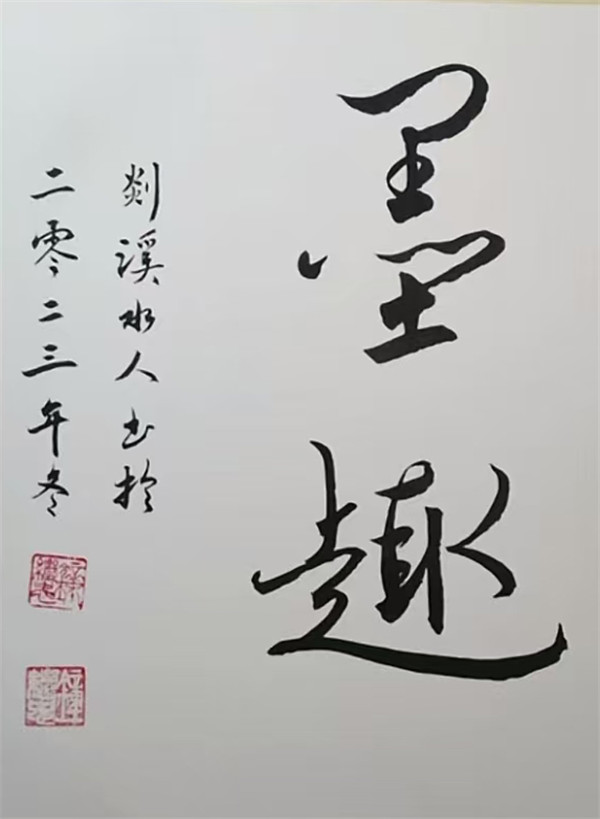 墨趣
剡溪水人书於
二零二三年冬